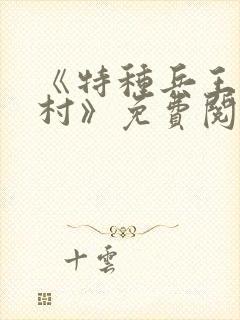 《特種兵王
村》免費閱
十雲